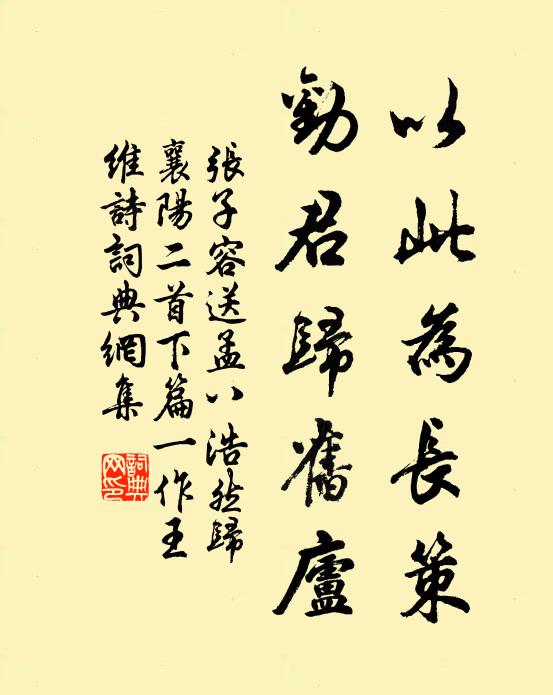 以此為長策
勸君歸舊廬
張子容送孟八浩然歸
襄陽二首下篇一作王
維詩詞典網集
詞典
网印